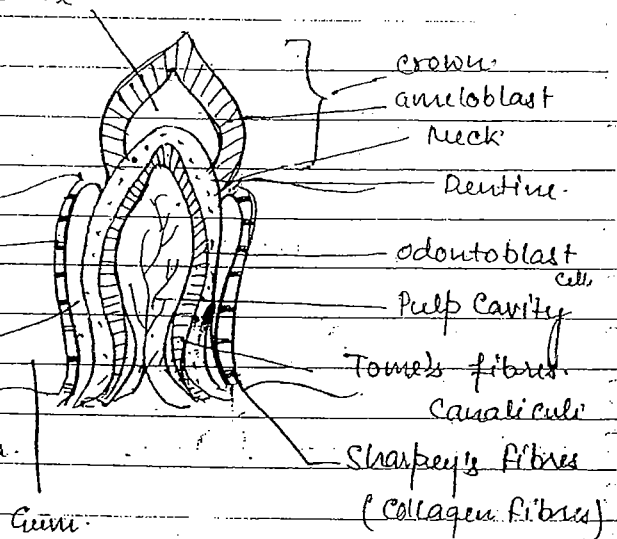 crown.
ameloblast
Neck
Dentine.
odontoblast
cells
Pulp Cavity
Tome's fibres.
Canaliculi
Sharpey's fibres
(Collagen fibres)
Gum.